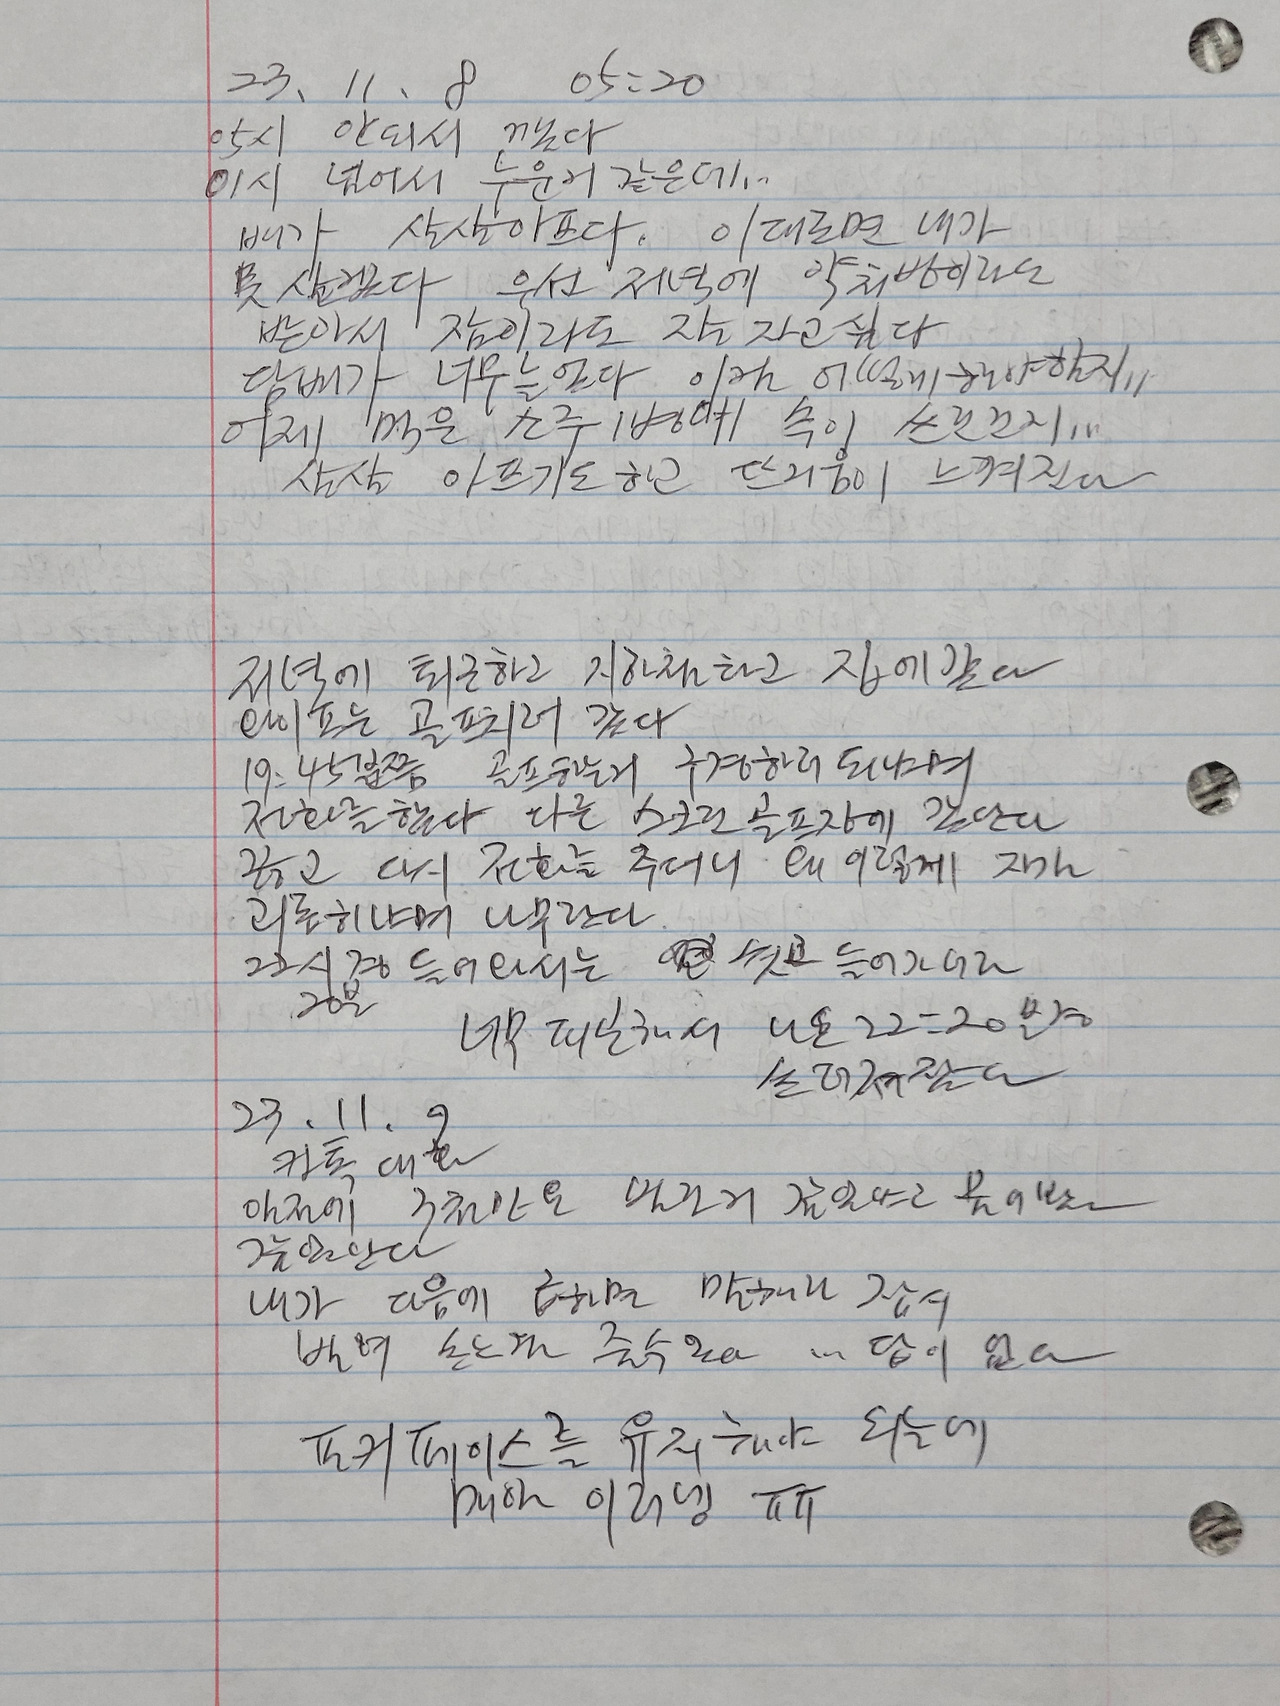 23. 11. 8 05:20
05시 안되서 깼다
01시 넘어서 누운거 같은데...
배가 살살아프다. 이대로면 내가
못살겠다 우선 저녁에 약처방이라도
받아서 잠이라도 잘 자고싶다
담배가 너무늘었다 이걸 어떻게해야할지..
어제 먹은 소주1병에 속이 쓰르르지...
살살 아프기도하고 쓰라움이 느껴진다
저녁에 퇴근하고 집에갔다
와이프는 골프치러 갔다
19:45분쯤 골프하는거 구경하러 되냐며
전화를했다 다른 스크린골프장에 갔단다
끊고 다시 전화를 주더니 왜 이렇게 자기
괴롭히냐며 나무란다
22시경 들어와서는 씻고 들어가더라
20분
너무 피곤해서 나도 22:20분경
쓰러져잤다
23. 11. 9
카톡 대화
앞전에 빌린거 갚았냐고 물어보니
갚았단다
내가 다음에 급하면 말해라
... 답이 없다
포커페이스를 유지해야 되는데
매안 이러넹 ㅠㅠ